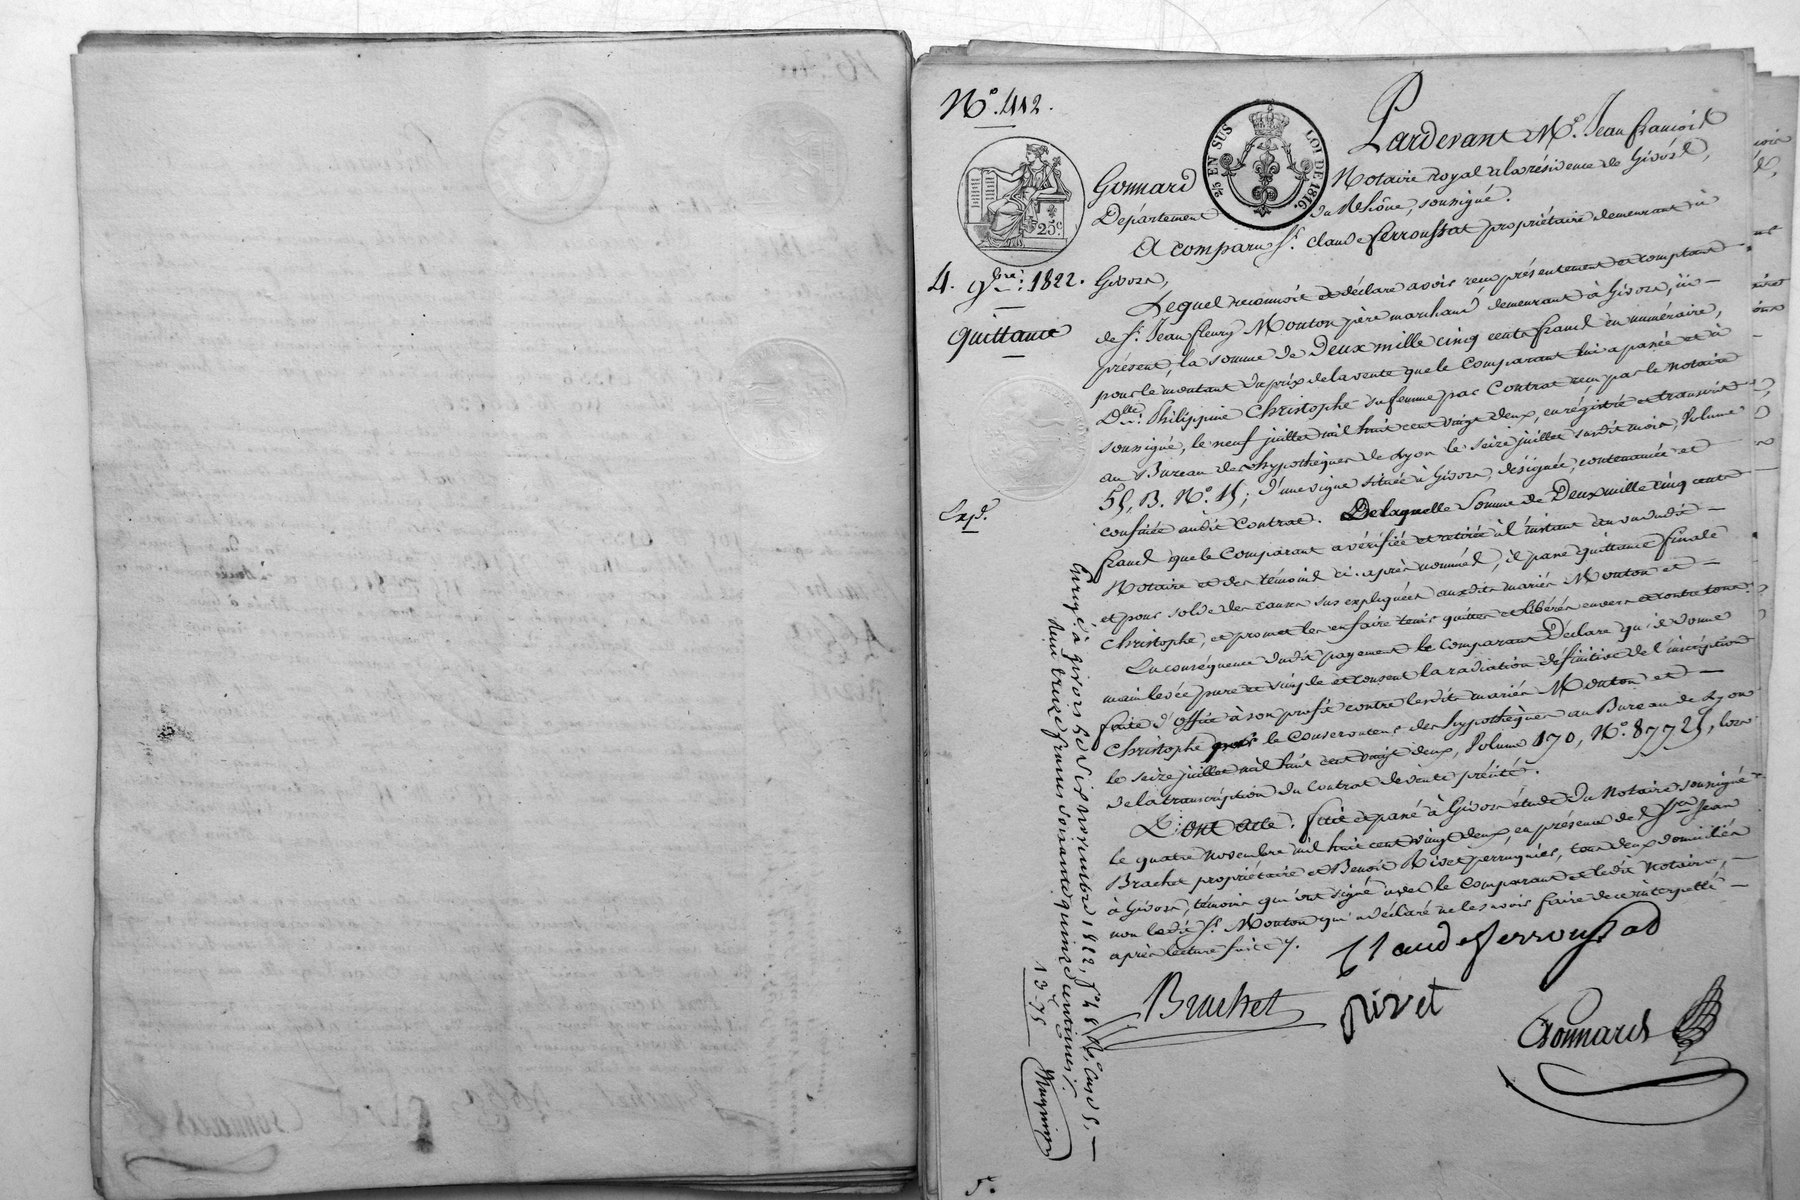 N.° 412.
5/25 EN SUS
LOI DE 1816.
25.c
4. 9bre: 1822.
quittance
Exp.
Pardevant M.e Jean françois
Gonnard Notaire royal à la résidence de Givors,
Département du Rhône, soussigné.
A comparu S.r Claude Ferroussat propriétaire demeurant à
Givors,
Lequel reconnoit et déclare avoir reçu présentement et comptant
de S.r Jean fleury Mouton père marchand demeurant à Givors, ici
présent, la somme de Deux mille cinq cents francs en numéraire,
pour le montant du prix de la vente que le Comparant lui a passée et à
D.lle Philippine Christophe sa femme par Contrat reçu par le Notaire
soussigné, le neuf juillet mil huit cent vingt deux, enrégistré et transcrit
au Bureau des hypothèques de Lyon le seize juillet susdit mois, Volume
55, B. N.° 15; d'une vigne située à Givors, désignée, contenancée et
confinée audit Contrat. De laquelle Somme de Deux mille cinq cents
francs que le Comparant a vérifiée et retirée à l'instant au vu dudit
Notaire et des témoins ci-après nommés, il passe quittance finale
et pour solde des causes sus expliquées auxdits mariés Mouton et
Christophe, et promet les en faire tenir quittes et libérés envers et contre tous.
En conséquence dudit payement le Comparant Déclare qu'il donne
main levée pure et simple et consent la radiation définitive de l'inscription
faite d'office à son profit contre lesdits mariés Mouton et
Christophe par le Conservateur des hypothèques au Bureau de Lyon
le seize juillet mil huit cent vingt deux, Volume 170, N.° 87725, lors
de la transcription du Contrat de vente précité.
Dont acte. fait et passé à Givors étude du Notaire soussigné
le quatre Novembre mil huit cent vingt deux, en présence de S.rs Jean
Brachet propriétaire et Benoit Rivet perruquier, tous deux domiciliés
à Givors, témoins qui ont signé avec le Comparant et ledit Notaire,
non ledit S.r Mouton qui a déclaré ne le savoir faire de ce interpellé
après lecture faite.
Claude ferroussat
Brachet
rivet
Gonnard
Enreg.é à givors le dix novembre 1822, f.° 48 R.° case 5,
Reçu treize francs soixante quinze centimes.
13-75